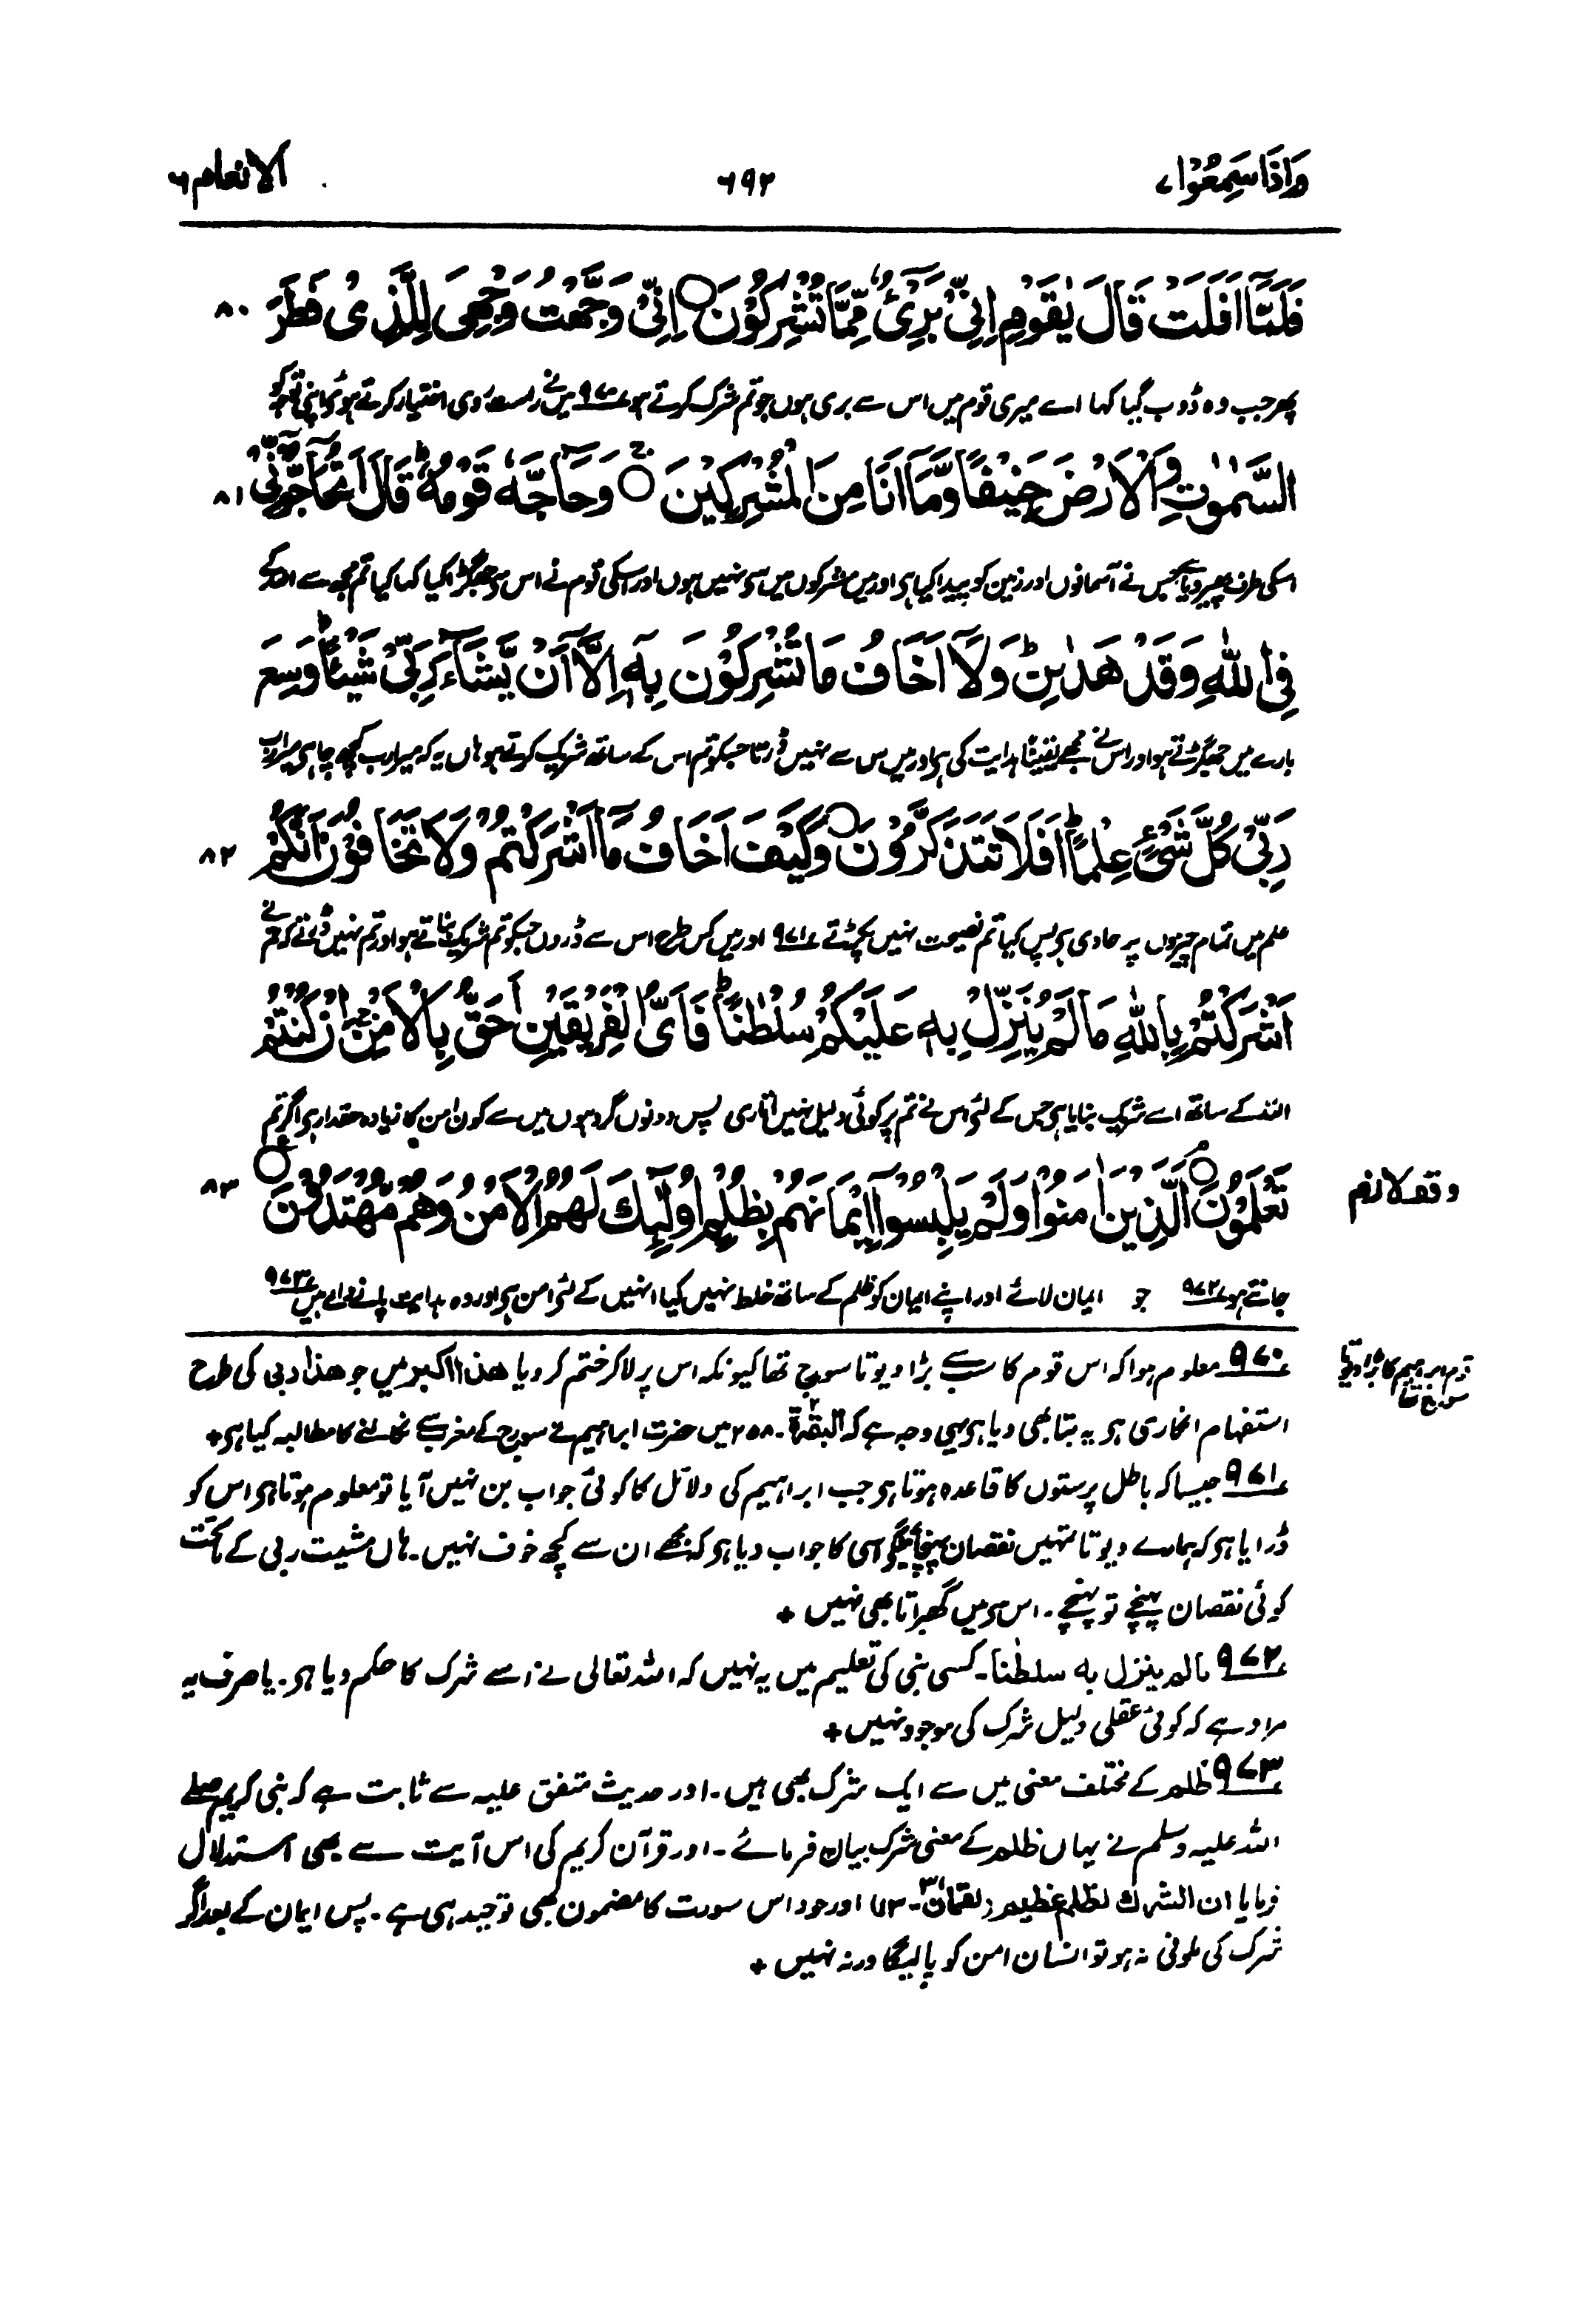 واذا سمعوا ۷
۶۹۲
الانعام ۶
فَلَمَّاۤ اَفَلَتْ قَالَ یٰقَوْمِ اِنِّیْ بَرِیْٓءٌ مِّمَّا تُشْرِكُوْنَ ○ اِنِّیْ وَجَّهْتُ وَجْهِیَ لِلَّذِیْ فَطَرَ
۸۰
پھر جب وہ ڈوب گیا کہا اے میری قوم میں اس سے بری ہوں جو تم شرک کرتے ہو ۹۷۰ میں نے راست روی اختیار کرتے ہوئے اپنی توجہ کو
السَّمٰوٰتِ وَالْاَرْضَ حَنِیْفًا وَّمَاۤ اَنَا مِنَ الْمُشْرِكِیْنَ ○ وَحَآجَّهٗ قَوْمُهٗ ؕ قَالَ اَتُحَآجُّوْٓنِّیْ
۸۱
اسکی طرف پھیر دیا جس نے آسمانوں اور زمین کو پیدا کیا ہی اور میں مشرکوں میں سے نہیں ہوں اور اسکی قوم نے اس سے جھگڑا کیا کہا کیا تم مجھ سے اللہ کے
فِی اللّٰهِ وَقَدْ هَدٰىنِ ؕ وَلَاۤ اَخَافُ مَا تُشْرِكُوْنَ بِهٖۤ اِلَّاۤ اَنْ یَّشَآءَ رَبِّیْ شَیْـًٔا ؕ وَسِعَ
بارے میں جھگڑتے ہو اور اس نے مجھے یقیناً ہدایت کی ہی اور میں اس سے نہیں ڈرتا جسکو تم اس کے ساتھ شریک کرتے ہو ہاں یہ کہ میرا رب کچھ چاہے میرا رب
رَبِّیْ كُلَّ شَیْءٍ عِلْمًا ؕ اَفَلَا تَتَذَكَّرُوْنَ ○ وَكَیْفَ اَخَافُ مَاۤ اَشْرَكْتُمْ وَلَا تَخَافُوْنَ اَنَّكُمْ
۸۲
علم میں تمام چیزوں پر حاوی ہی پس کیا تم نصیحت نہیں پکڑتے ۹۷۱ اور میں کس طرح اس سے ڈروں جسکو تم شریک بناتے ہو اور تم نہیں ڈرتے کہ تم نے
اَشْرَكْتُمْ بِاللّٰهِ مَا لَمْ یُنَزِّلْ بِهٖ عَلَیْكُمْ سُلْطٰنًا ؕ فَاَیُّ الْفَرِیْقَیْنِ اَحَقُّ بِالْاَمْنِ ۚ اِنْ كُنْتُمْ
اللہ کے ساتھ اسے شریک بنایا ہی جس کے لئے اس نے تم پر کوئی دلیل نہیں اتاری پس دونوں گروہوں میں سے کون امن کا زیادہ حقدار ہی اگر تم
تَعْلَمُوْنَ ○ اَلَّذِیْنَ اٰمَنُوْا وَلَمْ یَلْبِسُوْۤا اِیْمَانَهُمْ بِظُلْمٍ اُولٰٓىِٕكَ لَهُمُ الْاَمْنُ وَهُمْ مُّهْتَدُوْنَ ○
۸۳
وقف لازم
جانتے ہو ۹۷۲ جو ایمان لائے اور اپنے ایمان کو ظلم کے ساتھ خلط نہیں کیا انہیں کے لئے امن ہی اور وہ ہدایت پانے والے ہیں ۹۷۳
۹۷۰ معلوم ہوا کہ اس قوم کا سب سے بڑا دیوتا سورج تھا کیونکہ اس پر لا کر ختم کر دیا ھذا اکبر میں جو ھذا ربی کی طرح
قوم ابراہیم کا بڑا دیوتا
سورج تھا
استفہام انکاری ہی یہ بتا بھی دیا ہی یہی وجہ ہے کہ البقرۃ ۲-۲۵۸ میں حضرت ابراہیم نے سورج کے مغرب سے نکالنے کا مطالبہ کیا ہی +
۹۷۱ جیسا کہ باطل پرستوں کا قاعدہ ہوتا ہی جب ابراہیم کی دلائل کا کوئی جواب بن نہیں آیا تو معلوم ہوتا ہی اس کو
ڈرایا ہی کہ ہمارے دیوتا تمہیں نقصان پہنچائینگے اسی کا جواب دیا ہی کہ مجھے ان سے کچھ خوف نہیں۔ ہاں مشیت ربی کے ماتحت
کوئی نقصان پہنچے تو پہنچے۔ اس سے میں گھبراتا بھی نہیں +
۹۷۲ مالم ینزل به سلطٰنا۔ کسی نبی کی تعلیم میں یہ نہیں کہ اللہ تعالی نے اسے شرک کا حکم دیا ہی۔ یا صرف یہ
مراد ہے کہ کوئی عقلی دلیل شرک کی موجود نہیں +
۹۷۳ ظلم کے مختلف معنی میں سے ایک شرک بھی ہیں۔ اور حدیث متفق علیہ سے ثابت ہے کہ نبی کریم صلے
اللہ علیہ وسلم نے یہاں ظلم کے معنی شرک بیان فرمائے۔ اور قرآن کریم کی اس آیت سے بھی استدلال
فرمایا ان الشرك لظلم عظیم (لقمان ۳۱-۱۳) اور خود اس سورت کا مضمون بھی توحید ہی ہے۔ پس ایمان کے بعد اگر
شرک کی ملونی نہ ہو تو انسان امن کو پا لیگا ورنہ نہیں +